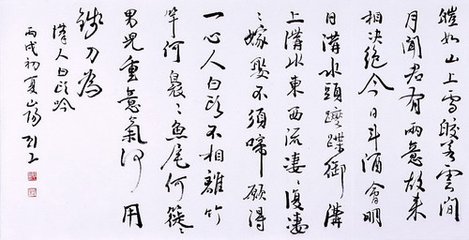 皚如山上雪皎若雲間
月聞君有兩意故来
相決絶今日斗酒會明
日溝水頭躞蹀御溝
上溝水東西流凄々復凄
々嫁娶不須啼願得
一心人白頭不相離竹
竿何裊々魚尾何簁々
男兒重意氣何用
錢刀為
漢人白頭吟
丙戌初夏山陽